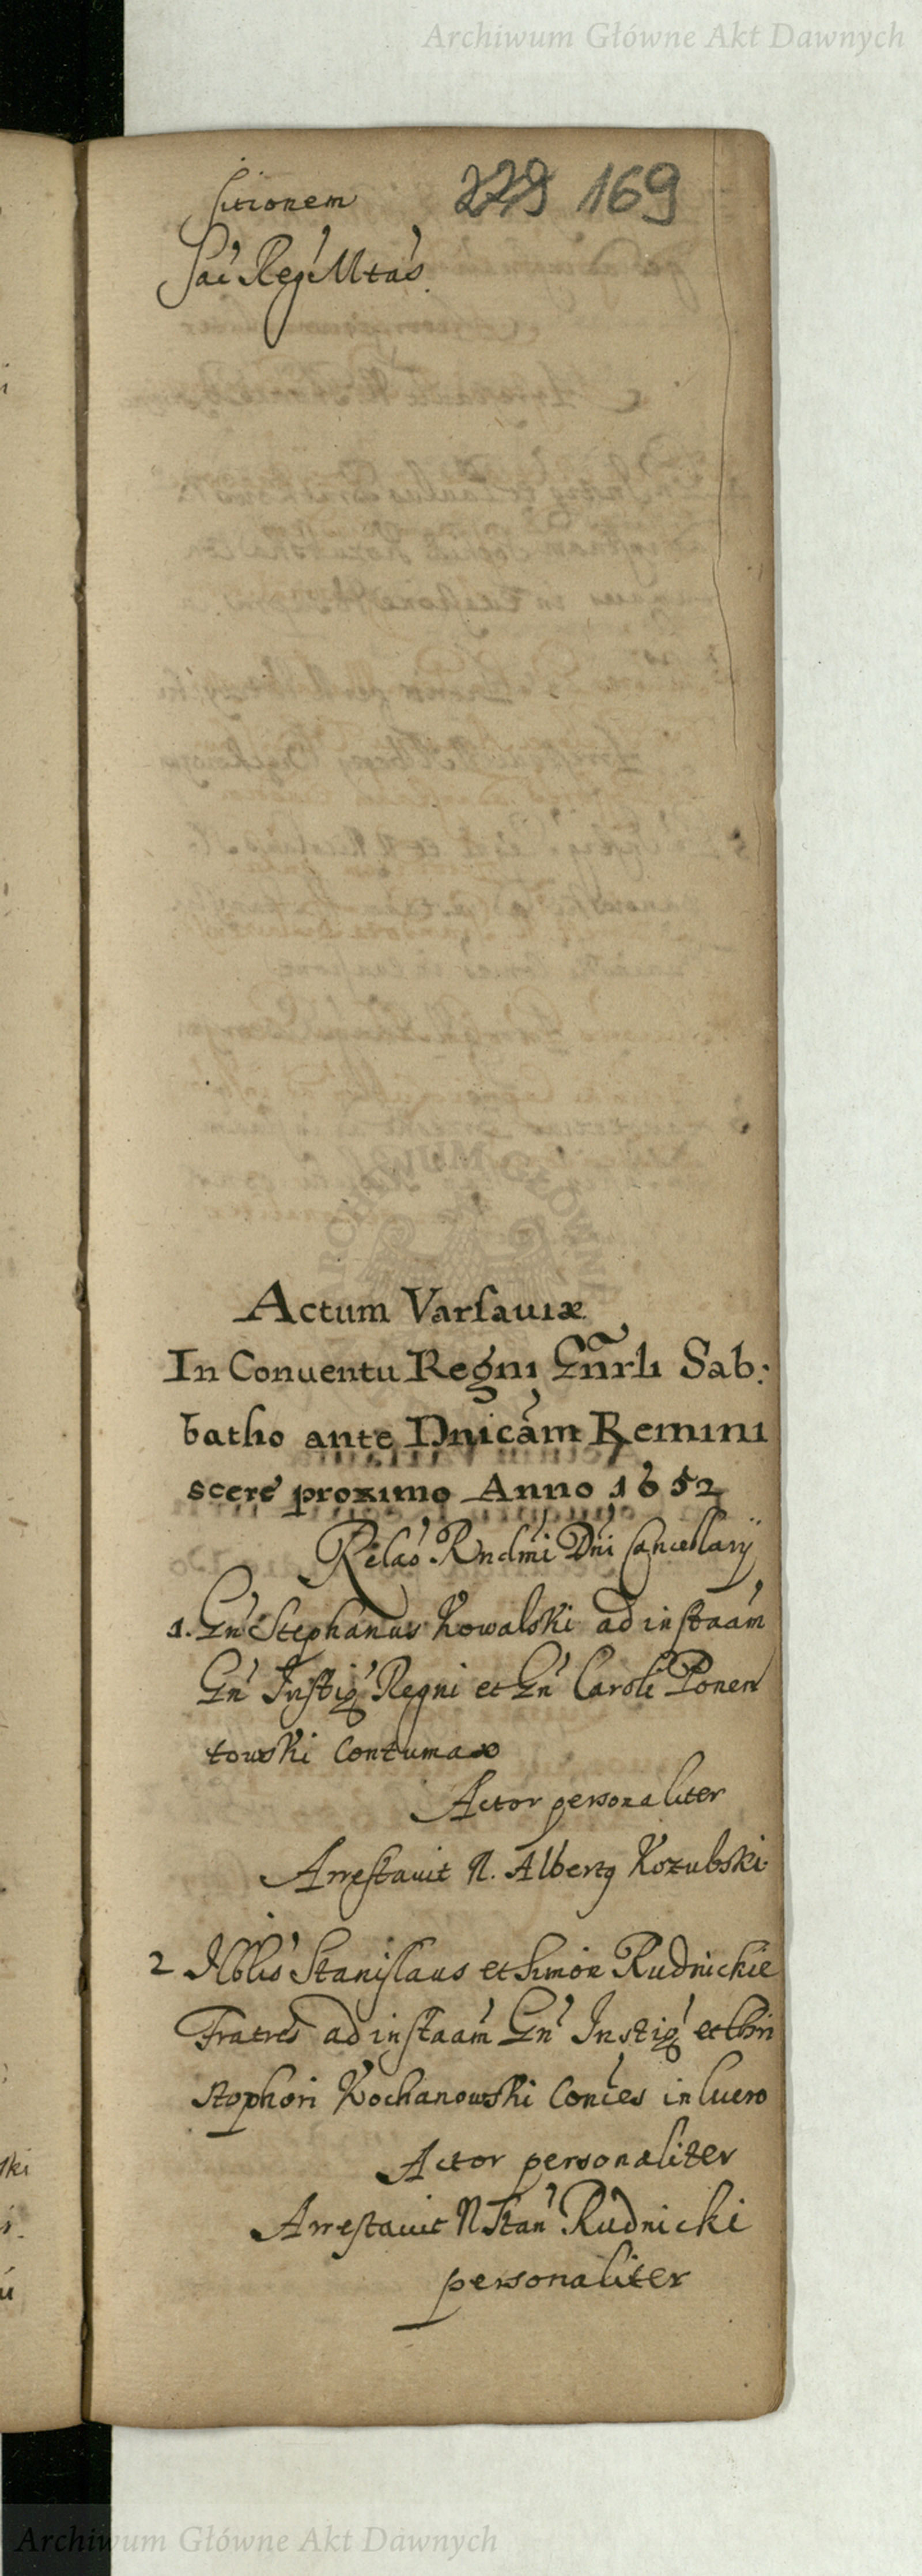 Archiwum Główne Akt Dawnych
sitionem 229 169
Sac̃ Reg̃ Mtas̃
Actum Varsauiæ
In Conuentu Regni Gñrli Sab:
batho ante Dnicam Remini
scere proximo Anno 1652
Relaõ Rndmi Dni Cancellarij
1. Gn̄ Stephanus Kowalski ad instaam
Gn̄ Instig Regni et Gn̄ Caroli Ponen
towski Contumax
Actor personaliter
Arrestauit N. Albertg Kozubski.
2 Nblis Stanislaus et Simon Rudnickie
Fratres ad instaam Gn̄ Instig et Chri
stophori Kochanowski Conces in lucro
Actor personaliter
Arrestauit N Stan Rudnicki
personaliter
ski
Archiwum Główne Akt Dawnych